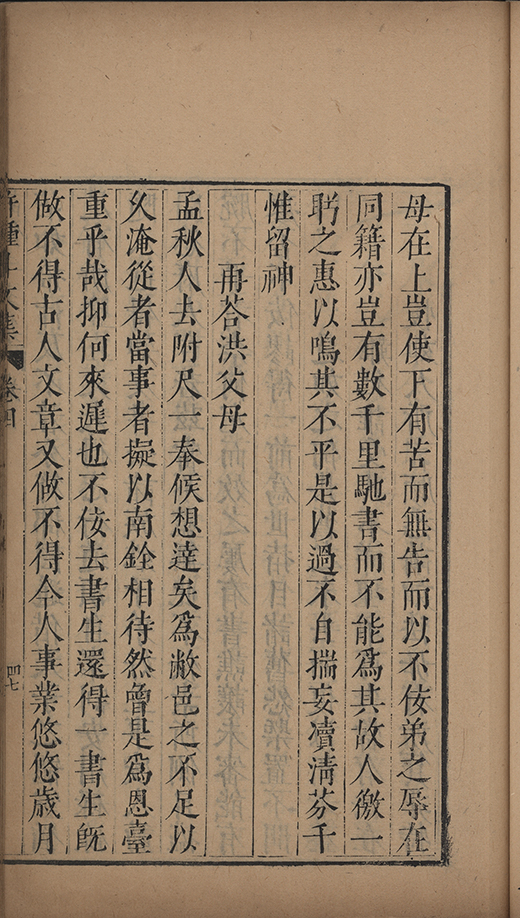 母在上豈使下有苦而無告而以不佞弟之辱在
同籍亦豈有數千里馳書而不能爲其故人徼一
眄之惠以鳴其不平是以過不自揣妄凟淸芬千
惟留神
再荅洪父母
孟秋人去附尺一奉候想達矣爲敝邑之不足以
久淹從者當事者擬以南銓相待然曾是爲恩臺
重乎哉抑何來遲也不佞去書生還得一書生旣
做不得古人文章又做不得今人事業悠悠歲月
文集
卷四
四七